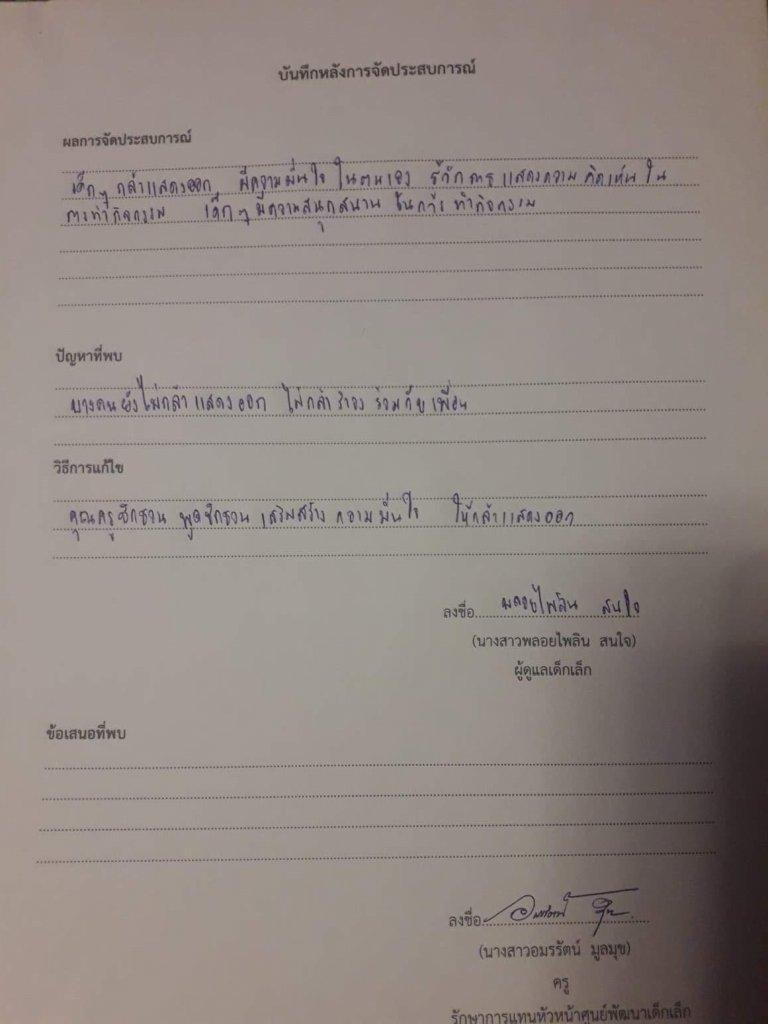 บันทึกหลังการจัดประสบการณ์
ผลการจัดประสบการณ์
เด็กๆ กล้าแสดงออก มีความมั่นใจ ในตนเอง รู้จักการแสดงความคิดเห็นใน
การทำกิจกรรม เด็กๆ มีความสนุกสนาน ในการทำกิจกรรม
ปัญหาที่พบ
บางคนยังไม่กล้าแสดงออก ไม่กล้า ร่วมกับเพื่อน
วิธีการแก้ไข
คุณครูชักชวน พูดชักชวน เสริมสร้าง ความมั่นใจ ให้กล้าแสดงออก
ลงชื่อ พลอยไพลิน สนใจ
(นางสาวพลอยไพลิน สนใจ)
ผู้ดูแลเด็กเล็ก
ข้อเสนอที่พบ
ลงชื่อ
(นางสาวอมรรัตน์ มูลมุข)
ครู
รักษาการแทนหัวหน้าศูนย์พัฒนาเด็กเล็ก